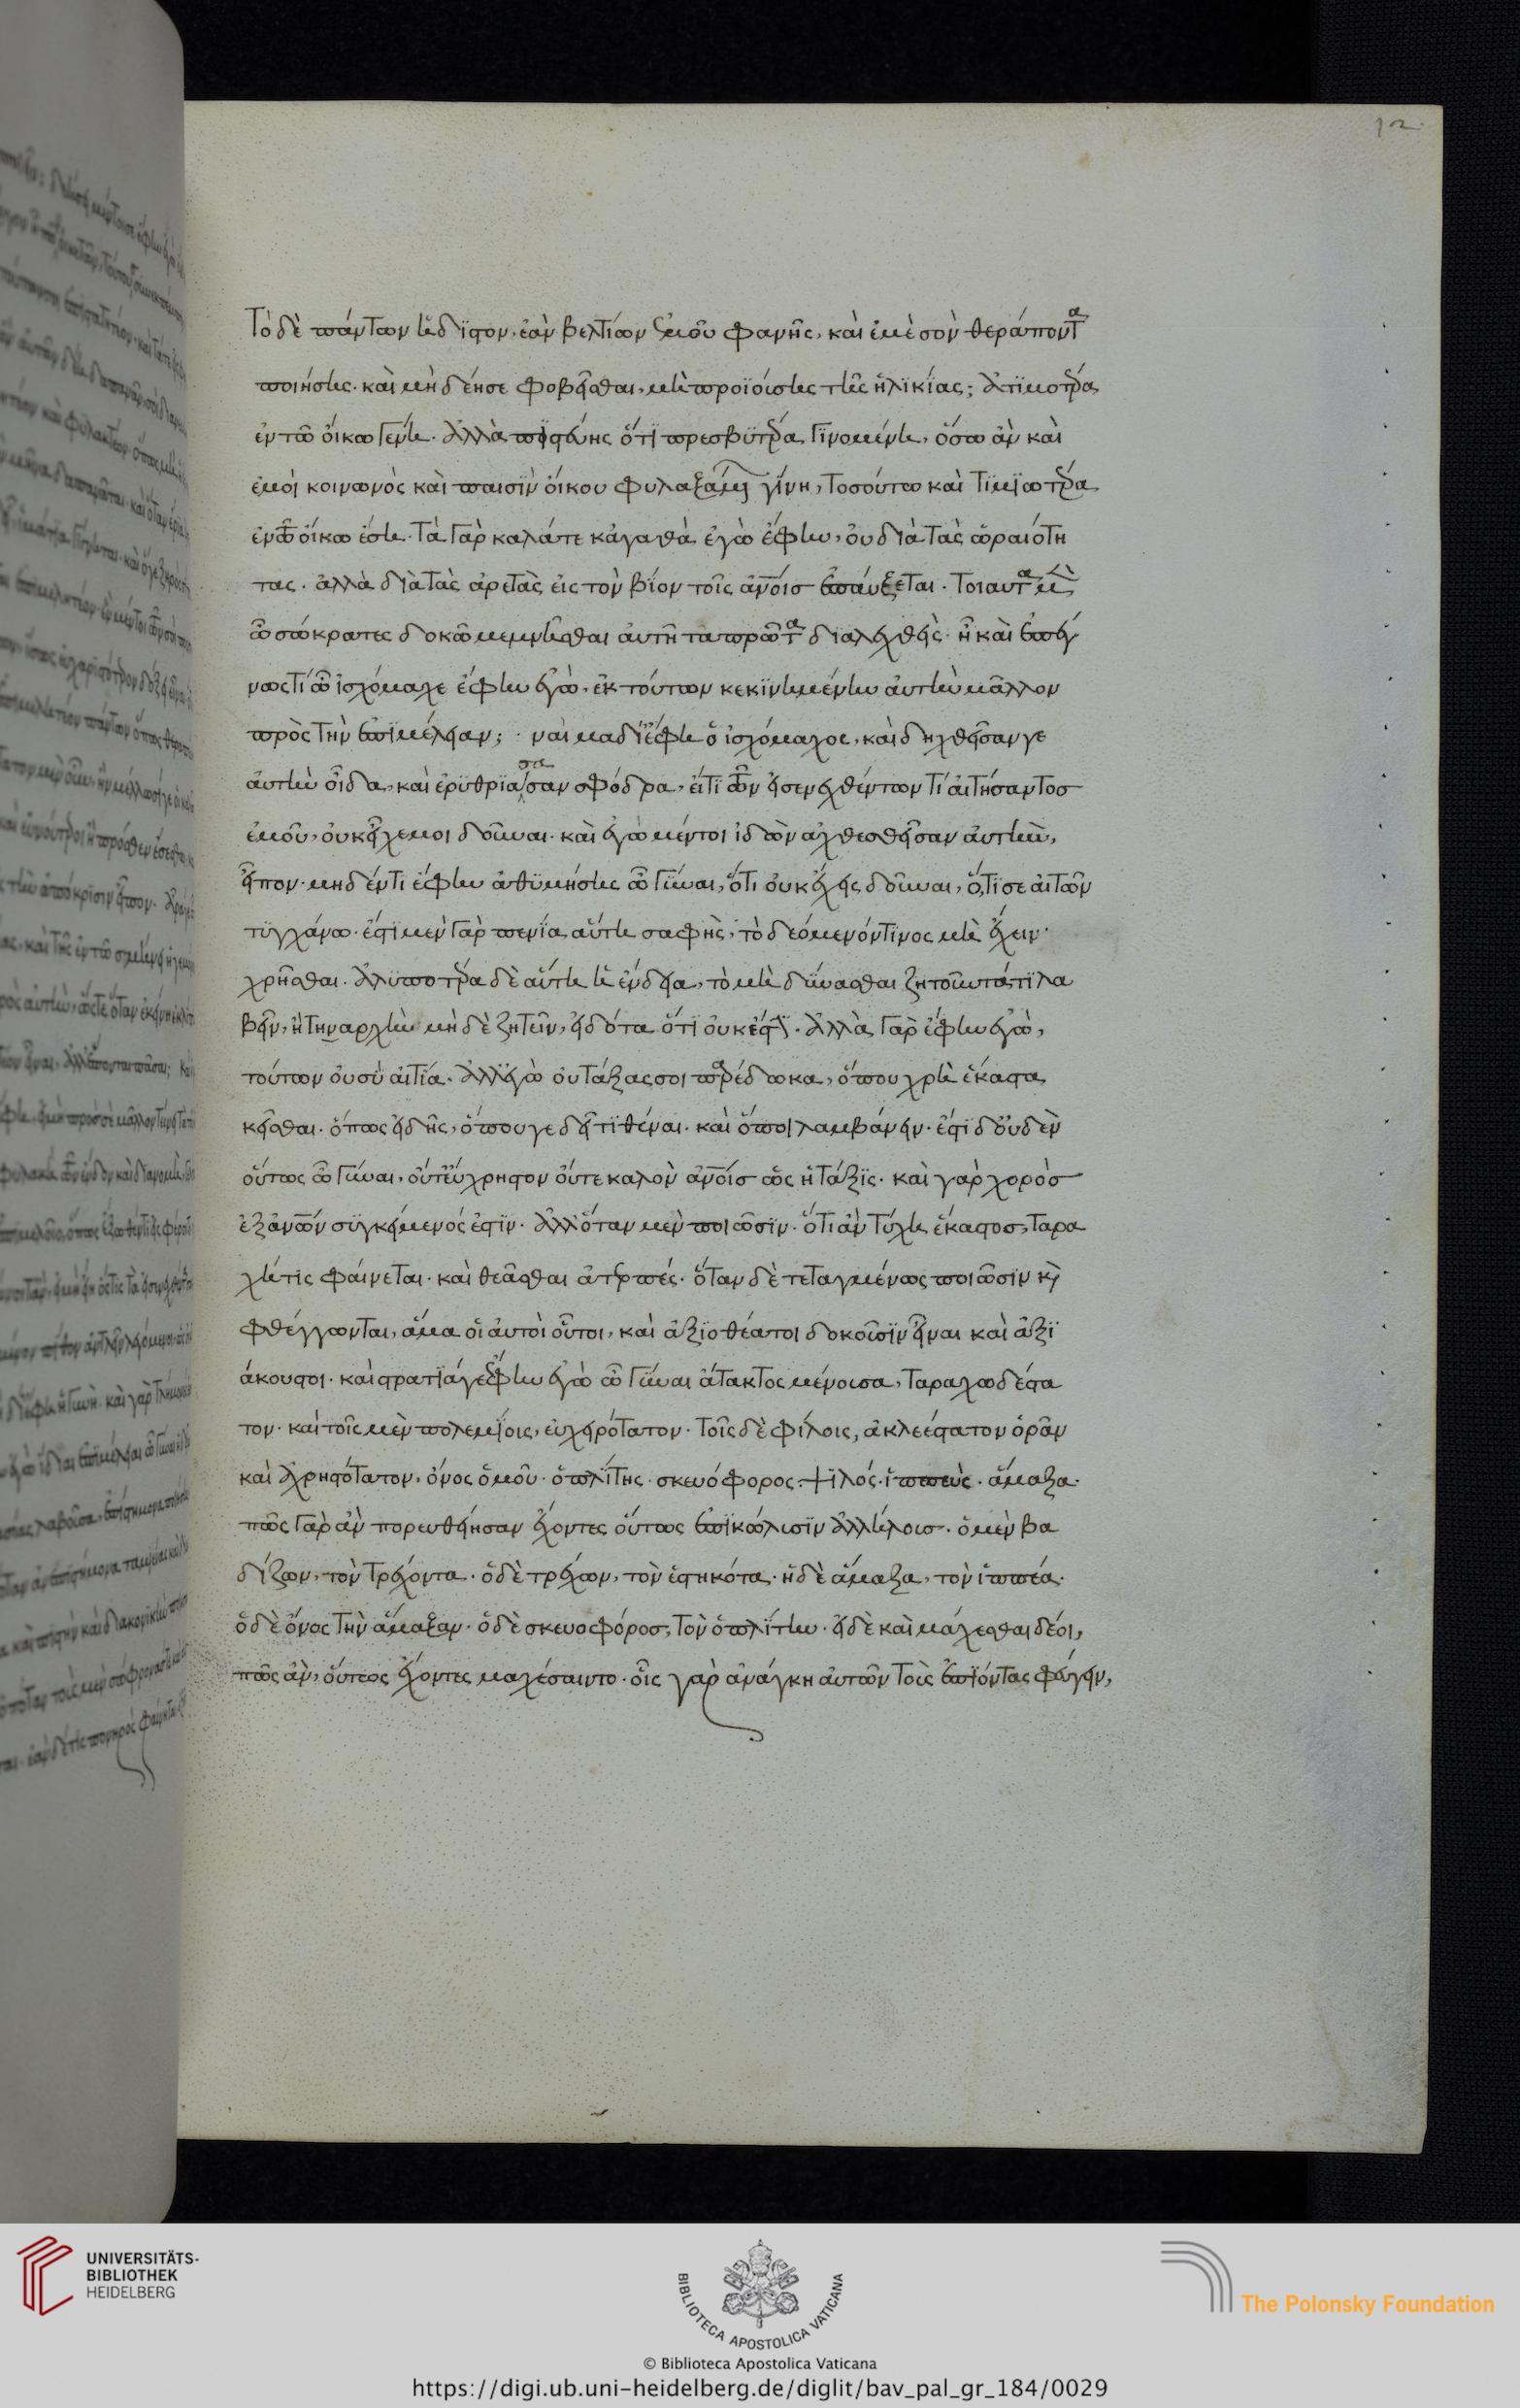 12
Τὸ δὲ πάντων ἥδιστον, ἐὰν βελτίων ἐμοῦ φανῆς, καὶ ἐμὲ σὸν θεράποντα
ποιήσης. καὶ μὴ δέησε φοβεῖσθαι, μὴ προϊούσης τῆς ἡλικίας; ἀτιμοτέρα
ἐν τῶ οἴκω γένη. ἀλλὰ πιστεύης ὅτι πρεσβυτέρα γινομένη, ὅσω ἂν καὶ
ἐμοὶ κοινωνὸς καὶ παισὶν οἴκου φύλαξ ἀμείνων γίνη, τοσούτω καὶ τιμιωτέρα
ἐν τῶ οἴκω ἔση. Τὰ γὰρ καλά τε κἀγαθὰ ἐγὼ ἔφην, οὐ διὰ τὰς ὡραιότη
τας. ἀλλὰ διὰ τὰς ἀρετὰς εἰς τὸν βίον τοῖς ἀνοις ἐπαύξεται. Τοιαῦτα μὲν
ὦ σώκρατες δοκῶ μεμνῆσθαι αὐτῆ τὰ πρῶτα διαλεχθείς. ἦ καὶ ἐπέγ
νως τί ὦ ἰσχόμαχε ἔφην ἐγὼ, ἐκ τούτων κεκινημένην αὐτὴν μᾶλλον
πρὸς τὴν ἐπιμέλειαν; ναὶ μὰ δί ἔφη ὁ ἰσχόμαχος, καὶ δηχθεῖσάν γε
αὐτὴν οἶδα, καὶ ἐρυθριάσασαν σφόδρα, εἴ τι τῶν εἰσενεχθέντων τί αἰτήσαντος
ἐμοῦ, οὐκ εἶχέ μοι δοῦναι. καὶ ἐγὼ μέντοι ἰδὼν ἀχθεσθεῖσαν αὐτὴν,
εἶπον. μηδέν τι ἔφην ἀθυμήσης ὦ γύναι, ὅτι οὐκ ἔχεις δοῦναι, ὅ,τι σε αἰτῶν
τυγχάνω. ἔστι μὲν γὰρ πενία αὕτη σαφὴς, τὸ δεόμενόν τινος μὴ ἔχειν
χρῆσθαι. ἀλυποτέρα δὲ αὕτη ἡ ἔνδεια, τὸ μὴ δύνασθαι ζητοῦντά τι λα
βεῖν, ἢ τὴν ἀρχὴν μὴ δὲ ζητεῖν, εἰδότα ὅτι οὐκ ἔστι. ἀλλὰ γὰρ ἔφην ἐγὼ,
τούτων οὐ σὺ αἰτία. ἀλλ' ἐγὼ οὐ τάξας σοι παρέδωκα, ὅπου χρὴ ἕκαστα
κεῖσθαι. ὅπως εἰδῆς, ὅπου γε δεῖ τιθέναι. καὶ ὅποι λαμβάνειν. ἔστι δ' οὐδὲν
οὕτως ὦ γύναι, οὔτ' εὔχρηστον οὔτε καλὸν ἀνοις ὡς ἡ τάξις. καὶ γὰρ χορὸς
ἐξ ἀνων συγκείμενός ἐστιν. ἀλλ' ὅταν μὲν ποιῶσιν. ὅτι ἂν τύχη ἕκαστος, ταρα
χή τις φαίνεται. καὶ θεᾶσθαι ἀτερπές. ὅταν δὲ τεταγμένως ποιῶσιν καὶ
φθέγγωνται, ἅμα οἱ αὐτοὶ οὗτοι, καὶ ἀξιοθέατοι δοκοῦσιν εἶναι καὶ ἀξι
άκουστοι. καὶ στρατιά γε ἔφην ἐγὼ ὦ γύναι ἄτακτος μένουσα, ταραχωδέστα
τον. καὶ τοῖς μὲν πολεμίοις, εὐχειρότατον. τοῖς δὲ φίλοις, ἀκλεέστατον ὁρᾶν
καὶ ἀχρηστότατον, ὄνος ὁμοῦ. ὁπλίτης. σκευόφορος. ψιλός. ἱππεὺς. ἅμαξα.
πῶς γὰρ ἂν πορευθείησαν ἔχοντες οὕτως ἐπικώλισιν ἀλλήλοις. ὁ μὲν βα
δίζων, τὸν τρέχοντα. ὁ δὲ τρέχων, τὸν ἑστηκότα. ἡ δὲ ἅμαξα, τὸν ἱππέα.
ὁ δὲ ὄνος τὴν ἅμαξαν. ὁ δὲ σκευοφόρος, τὸν ὁπλίτην. εἰ δὲ καὶ μάχεσθαι δέοι,
πῶς ἂν, οὕτως ἔχοντες μαχέσαιντο. οἷς γὰρ ἀνάγκη αὐτῶν τοὺς ἐπιόντας φεύγειν,
UNIVERSITÄTS-
BIBLIOTHEK
HEIDELBERG
BIBLIOTECA APOSTOLICA VATICANA
The Polonsky Foundation
© Biblioteca Apostolica Vaticana
https://digi.ub.uni-heidelberg.de/diglit/bav_pal_gr_184/0029